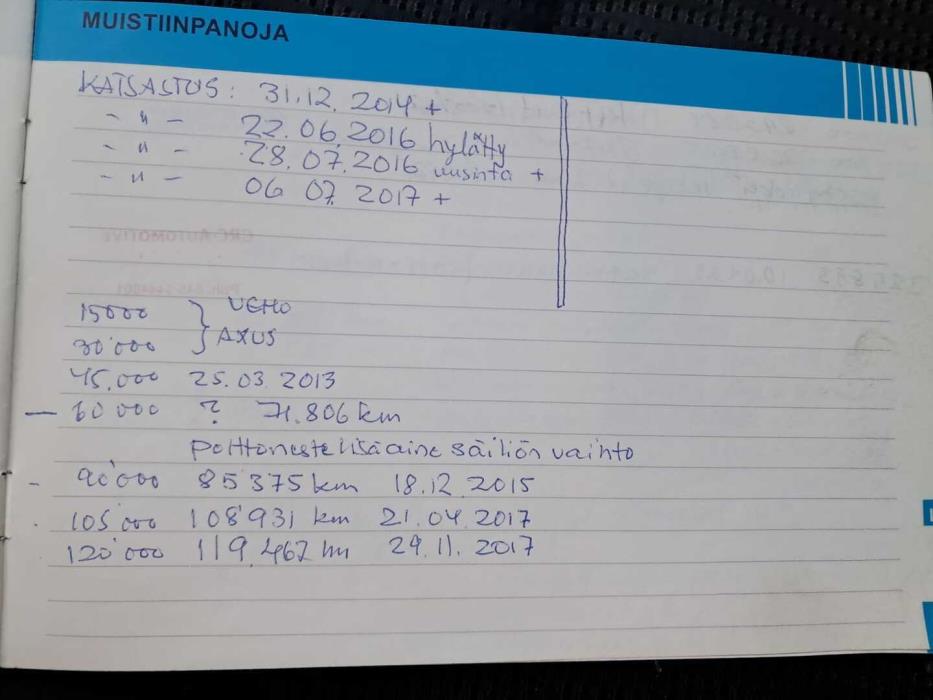 MUISTIINPANOJA
KATSASTUS: 31.12.2014 +
- " - 22.06.2016 hylätty
- " - 28.07.2016 uusinta +
- " - 06 07 2017 +
CRC AUTOMOTIVE
15000 } VEHO
30'000 } AXUS
45.000 25.03 2013
— 60 000 ? 71.806 km
polttoneste lisäaine säiliön vaihto
- 90'000 85375 km 18.12 2015
. 105'000 108'931 km 21.04 2017
120'000 119.467 km 29.11. 2017